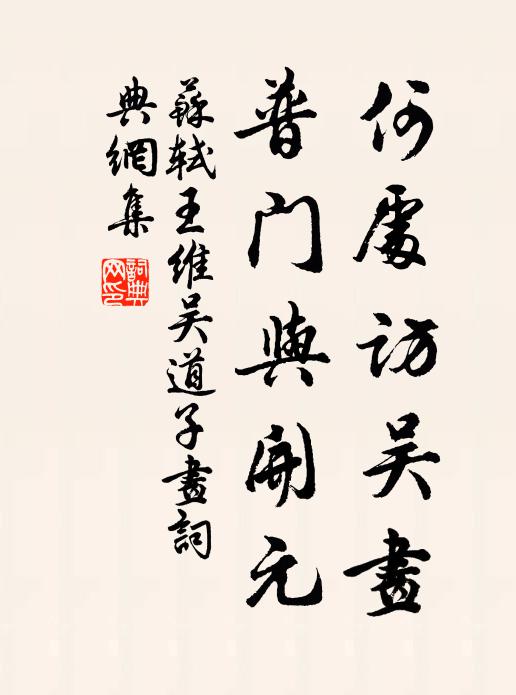 何處訪吳畫
普門與開元
蘇軾王維吳道子畫詞
典網集
詞典
网印